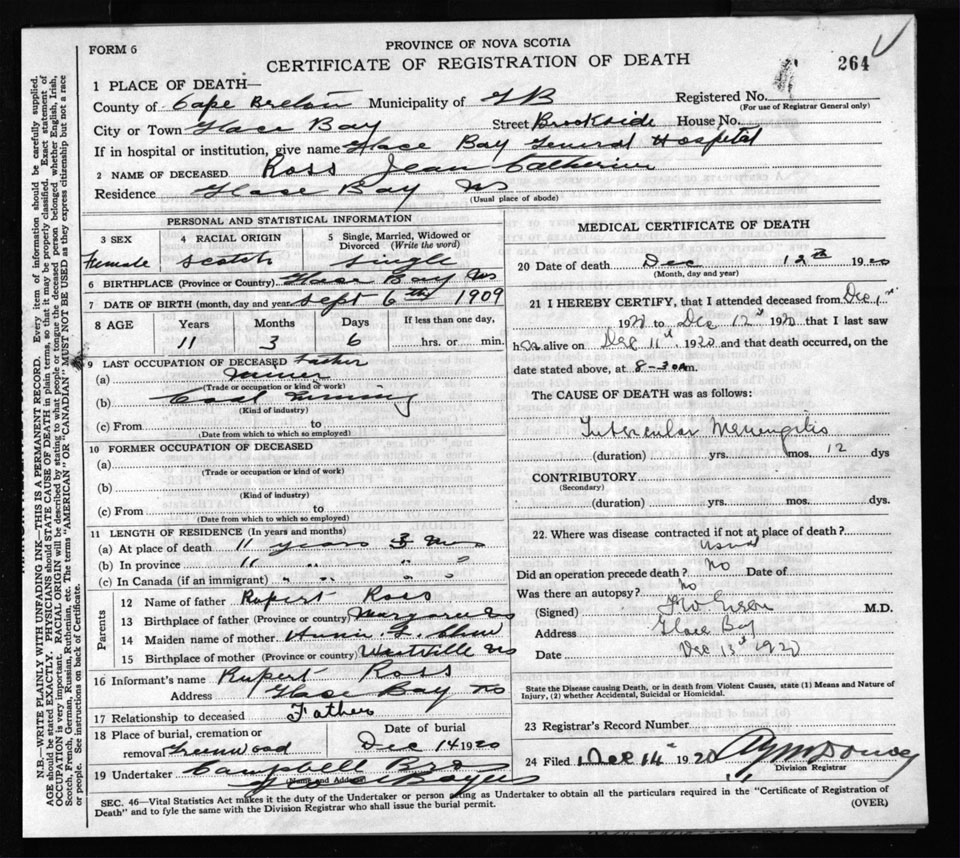 FORM 6
PROVINCE OF NOVA SCOTIA
CERTIFICATE OF REGISTRATION OF DEATH
264
1 PLACE OF DEATH—
County of Cape Breton Municipality of GB Registered No.
(For use of Registrar General only)
City or Town Glace Bay Street Brookside House No.
If in hospital or institution, give name Glace Bay General Hospital
2 NAME OF DECEASED Ross Jean Catherine
Residence Glace Bay NS
(Usual place of abode)
PERSONAL AND STATISTICAL INFORMATION
3 SEX 4 RACIAL ORIGIN 5 Single, Married, Widowed or Divorced (Write the word)
Female Scotch Single
6 BIRTHPLACE (Province or Country) Glace Bay NS
7 DATE OF BIRTH (month, day and year) Sept 6th 1909
8 AGE Years Months Days If less than one day,
11 3 6 hrs. or min.
9 LAST OCCUPATION OF DECEASED Father
(a) Miner
(Trade or occupation or kind of work)
(b) Coal Mining
(Kind of industry)
(c) From to
(Date from which to which so employed)
10 FORMER OCCUPATION OF DECEASED
(a)
(Trade or occupation or kind of work)
(b)
(Kind of industry)
(c) From to
(Date from which to which so employed)
11 LENGTH OF RESIDENCE (In years and months)
(a) At place of death 11 years 3 mos
(b) In province 11 " " "
(c) In Canada (if an immigrant) " " " "
Parents
12 Name of father Rupert Ross
13 Birthplace of father (Province or country) Margaree NS
14 Maiden name of mother Annie
15 Birthplace of mother (Province or country) Westville NS
16 Informant's name Rupert Ross
Address Glace Bay NS
17 Relationship to deceased Father
18 Place of burial, cremation or Date of burial
removal Greenwood Dec 14 1920
19 Undertaker Campbell Bros
(Name and Address)
MEDICAL CERTIFICATE OF DEATH
20 Date of death Dec 12th 1920
(Month, day and year)
21 I HEREBY CERTIFY, that I attended deceased from Dec 1st
1920 to Dec 12th 1920 that I last saw
her alive on Dec 11th 1920 and that death occurred, on the
date stated above, at 8-30 am.
The CAUSE OF DEATH was as follows:
Tubercular Meningitis
(duration) yrs. mos. 12 dys
CONTRIBUTORY
(Secondary)
(duration) yrs. mos. dys.
22. Where was disease contracted if not at place of death?
Did an operation precede death? No Date of
Was there an autopsy? No
(Signed) M.D.
Address Glace Bay
Date Dec 13th 1920
State the Disease causing Death, or in death from Violent Causes, state (1) Means and Nature of
Injury, (2) whether Accidental, Suicidal or Homicidal.
23 Registrar's Record Number
24 Filed Dec 14 1920
Division Registrar
SEC. 46—Vital Statistics Act makes it the duty of the Undertaker or person acting as Undertaker to obtain all the particulars required in the "Certificate of Registration of
Death" and to fyle the same with the Division Registrar who shall issue the burial permit. (OVER)
N.B.—WRITE PLAINLY WITH UNFADING INK—THIS IS A PERMANENT RECORD. Every item of information should be carefully supplied.
AGE should be stated EXACTLY. PHYSICIANS should STATE CAUSE OF DEATH in plain terms, so that it may be properly classified. Exact statement of
OCCUPATION is very important. RACIAL ORIGIN will be described by stating to what people or tongue the deceased person belonged whether English, Irish,
Scotch, French, German, Russian, Ruthenian, etc. The terms "AMERICAN" OR "CANADIAN" MUST NOT BE USED as they express citizenship but not a race
or people. See instructions on back of Certificate.